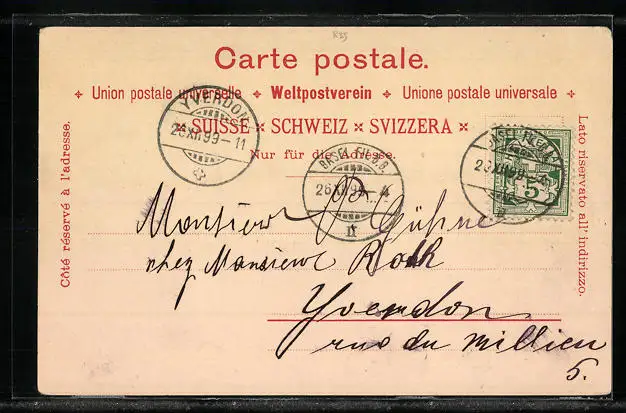 R35
Carte postale.
Union postale universelle Weltpostverein Unione postale universale
SUISSE SCHWEIZ SVIZZERA
Nur für die Adresse.
Côté réservé à l'adresse.
Lato riservato all' indirizzo.
YVERDON
26 XII 99 - 11
BASEL
26 XII 99
II
BASEL
XII 99
5
Monsieur Gühne
chez Monsieur Roth
Yverdon
rue du Millieu
5.